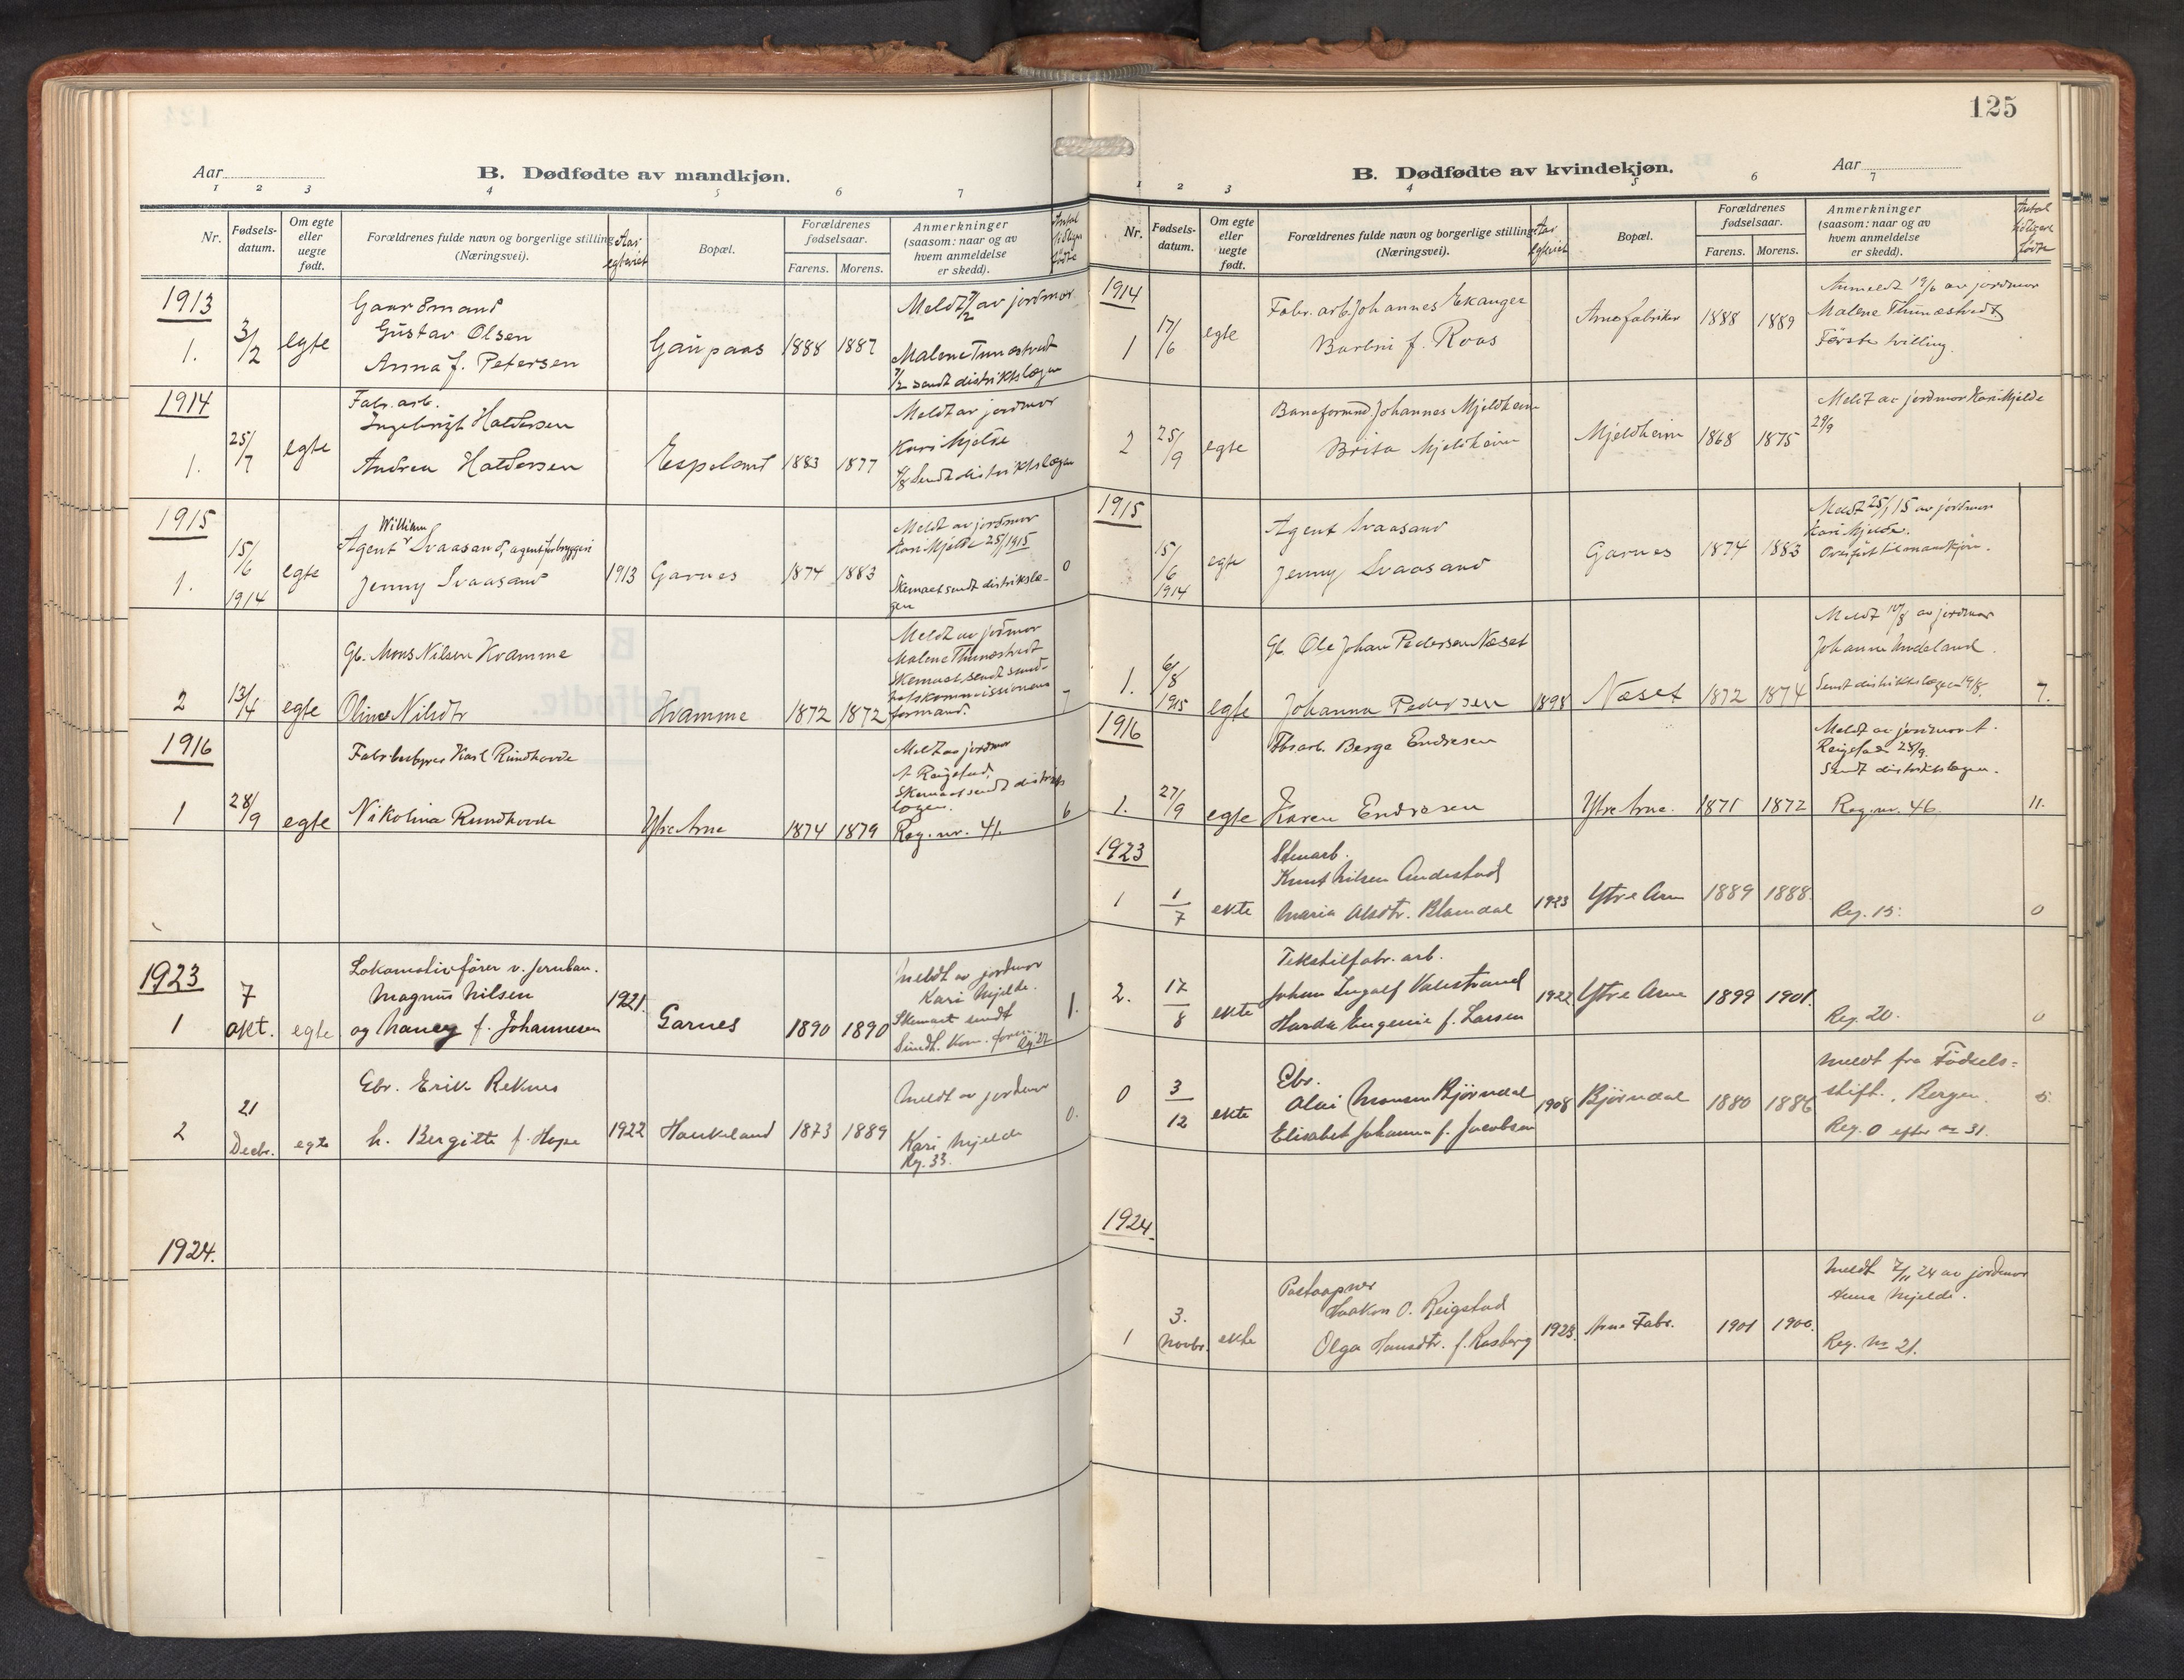 125
Aar
B. Dødfødte av mandkjøn.
1 2 3 4 5 6 7
Nr.
Fødsels-
datum.
Om egte
eller
uegte
født.
Forældrenes fulde navn og borgerlige stilling
(Næringsvei).
Aar
Bopæl.
Forældrenes
fødselsaar.
Farens. Morens.
Anmerkninger
(saasom: naar og av
hvem anmeldelse
er skedd).
Antal
tidligere
fødte
1913
1. 3/2 egte
Gaardmand
Gustav Olsen
Anna f. Petersen
Gaupaas 1888 1887
Meldt 7/2 av jordmor
Malene Tunæstvedt
7/2 sendt distriktslægen
1914
1. 25/7 egte
Fabr. arb.
Ingebrigt Haldorsen
Andrea Haldorsen
Espeland 1883 1877
Meldt av jordmor
Kari Mjelde
4/8 Sendt distriktslægen
1915
1. 15/6 1914 egte
William
Agent Svaasand, agent f. bryggeri
Jenny Svaasand
1913 Garnes 1874 1883
Meldt av jordmor
Kari Mjelde 25/1 1915
Skemaet sendt distriktslæ-
gen
0
2 13/4 egte
Gb. Mons Nilsen Kvamme
Oline Nilsdtr
Kvamme 1872 1872
Meldt av jordmor
Malene Thunæstvedt
Skemaet sendt sund-
hetskommissionens
formand.
7
1916
1 28/9 egte
Karl Rundhovde
Nikolina Rundhovde
Ytre Arne 1874 1879
Meldt av jordmor
A. Reigstad,
Skemaet sendt distrikts
lægen.
Reg. nr. 41.
6
1923
1 7 okt. egte
Lokomotivfører v. Jernban.
Magnus Nilsen
og Nancy f. Johannesen
1921. Garnes 1890 1890
Meldt av jordmor
Kari Mjelde.
Skemaet sendt
Sundh. Kom. form.
Rg. 27
1.
2 21 Decbr. egte
Gbr. Erik Reknes
h. Bergitte f. Hope
1922 Haukeland 1873 1889
Meldt av jordmor
Kari Mjelde
Rg. 33.
0.
1924.
B. Dødfødte av kvindekjøn.
Aar
1 2 3 4 5 6 7
Nr.
Fødsels-
datum.
Om egte
eller
uegte
født.
Forældrenes fulde navn og borgerlige stilling
(Næringsvei).
Aar
Bopæl.
Forældrenes
fødselsaar.
Farens. Morens.
Anmerkninger
(saasom: naar og av
hvem anmeldelse
er skedd).
Antal
tidligere
fødte
1914
1 17/6 egte
Fabr. arb. Johannes Ekanger
Barbro f. Roas
Arnefabriker 1888 1889
Anmeldt 19/6 av jordmor
Malene Thunæstvedt.
Første tvilling.
2 25/9 egte
Baneformd. Johannes Mjeldheim
Brita Mjeldheim
Mjeldheim 1868 1875
Meldt av jordmor Kari Mjelde
29/9
1915
15/6 1914 egte
Agent Svaasand
Jenny Svaasand
Garnes 1874 1883
Meldt 25/1 15 av jordmor
Kari Mjelde.
Overført til mandkjøn.
1. 6/8 1915 egte
Gb. Ole Johan Pedersen Næset
Johanna Pedersen
1898 Næset 1872 1874
Meldt 10/8 av jordmor
Johanne
Sendt distriktslægen 19/8.
7.
1916
1. 27/9 egte
Fbr arb. Berge Endresen
Karen Endresen
Ytre Arne. 1871 1872
Meldt av jordmor A.
Reigstad 28/9.
Sendt distriktslægen.
Reg. nr. 46.
11.
1923
1 1/7 ekte
Stenarb.
Knut Nilsen Andestad
Maria Olsdtr. Blomdal
1923 Ytre Arne 1889 1888.
Reg. 15.
0
2. 17/8 ekte
Tekstilfabr. arb.
Johan Ingolf Valestrand
Harda Eugenie f. Larsen
1922 Ytre Arne 1899 1901.
Reg. 20.
0
0 3/12 ekte
Gbr.
Olai Monsen Bjørndal
Elisabet Johanna f. Jacobsen
1908 Bjørndal 1880 1886
Meldt fra Fødsels-
stift., Bergen.
Reg. 0 efter nr 31.
5.
1924.
1 3. Novbr. ekte
Postaapner
Haakon O. Reigstad
Olga Hansdtr. f. Rosberg
1923. Arne Fabr. 1901 1900.
Meldt 7/11 24 av jordmor
Anna Mjelde.
Reg. No 21.